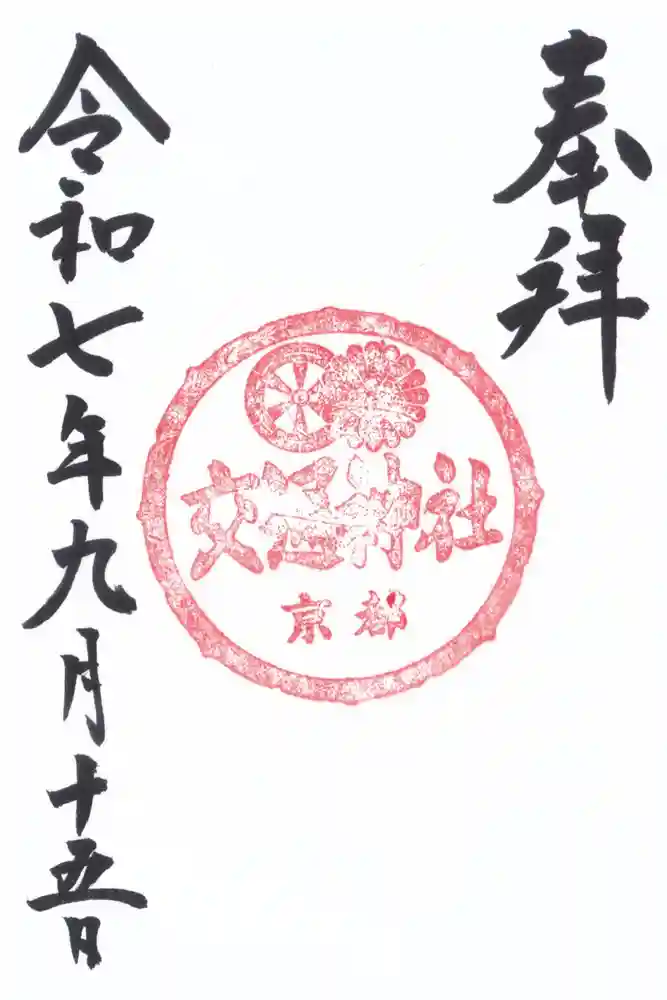 奉拝
交通神社
京都
令和七年九月十五日